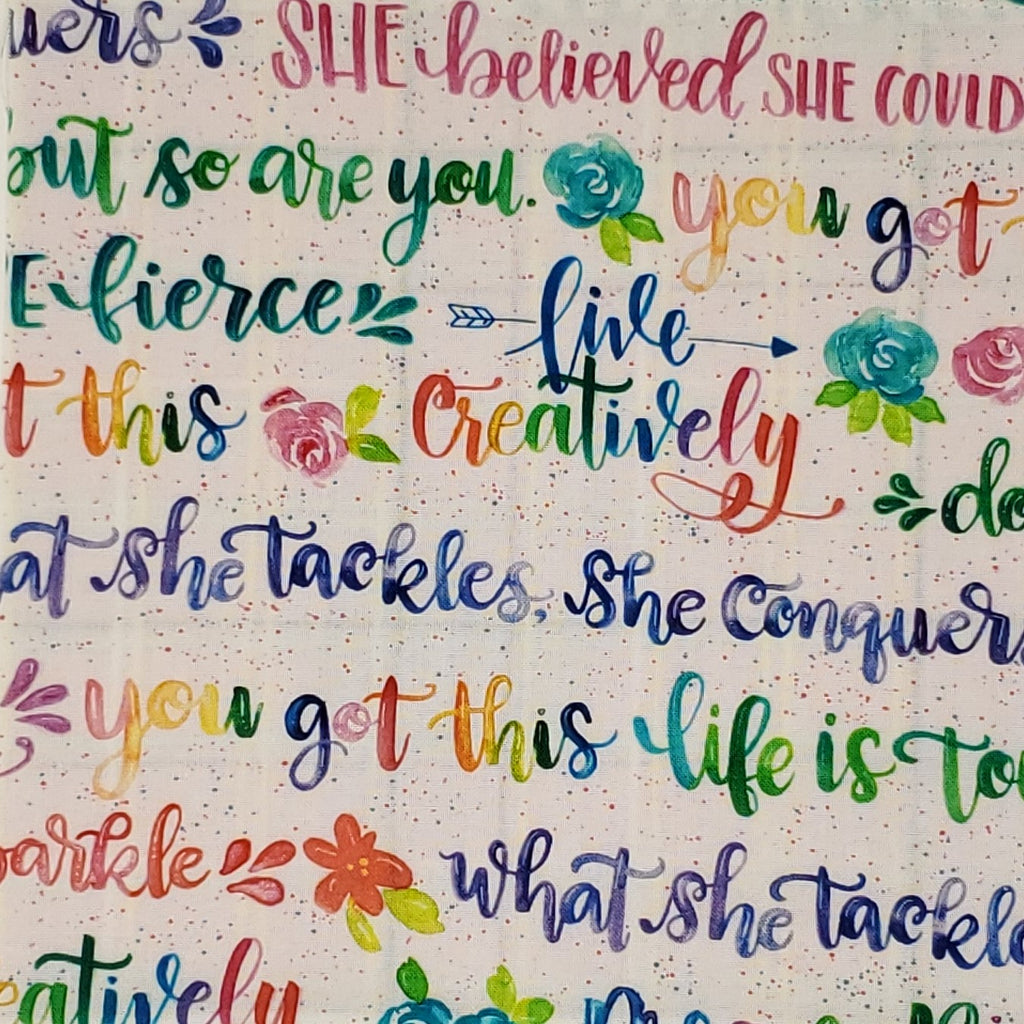 uers SHE believed SHE COULD
but so are you. you got
E fierce live
t this Creatively
do
at she tackles, she Conquers
you got this life is tou
parkle what she tackle
eatively